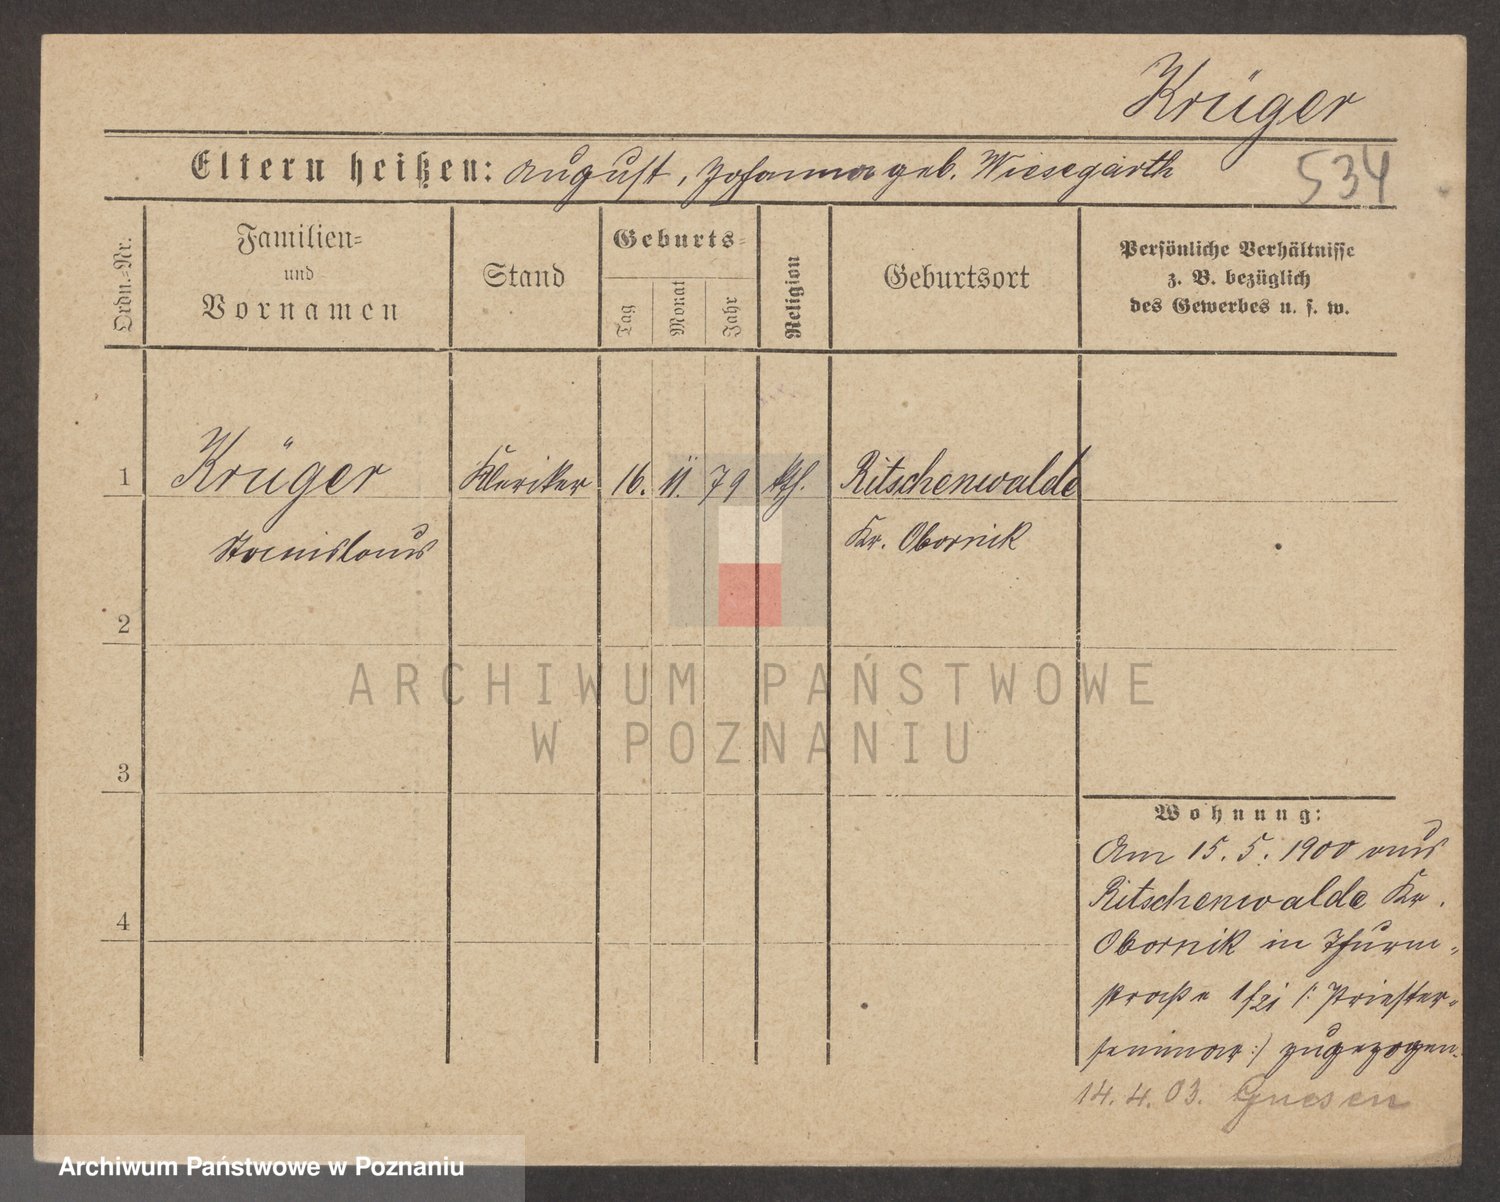 Krüger
Eltern heißen: August, Johanna geb. Wiesegarth
534
Ordn.=Nr.
Familien=
und
Vornamen
Stand
Geburts=
Tag
Monat
Jahr
Religion
Geburtsort
Persönliche Verhältnisse
z. B. bezüglich
des Gewerbes u. s. w.
1 Krüger Kleriker 16. 11. 79 kth. Ritschenwalde
Stanislaus Kr. Obornik
2
3
4
ARCHIWUM PAŃSTWOWE
W POZNANIU
Wohnung:
Am 15. 5. 1900 aus
Ritschenwalde Kr.
Obornik in Thurm=
straße 1/2 /: Priester=
seminar :/ zugezogen.
14. 4. 03. Gnesen
Archiwum Państwowe w Poznaniu